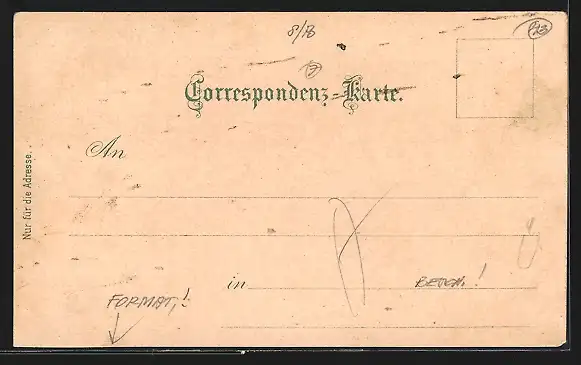 Correspondenz-Karte.
An
Nur für die Adresse.
in
FORMAT,!